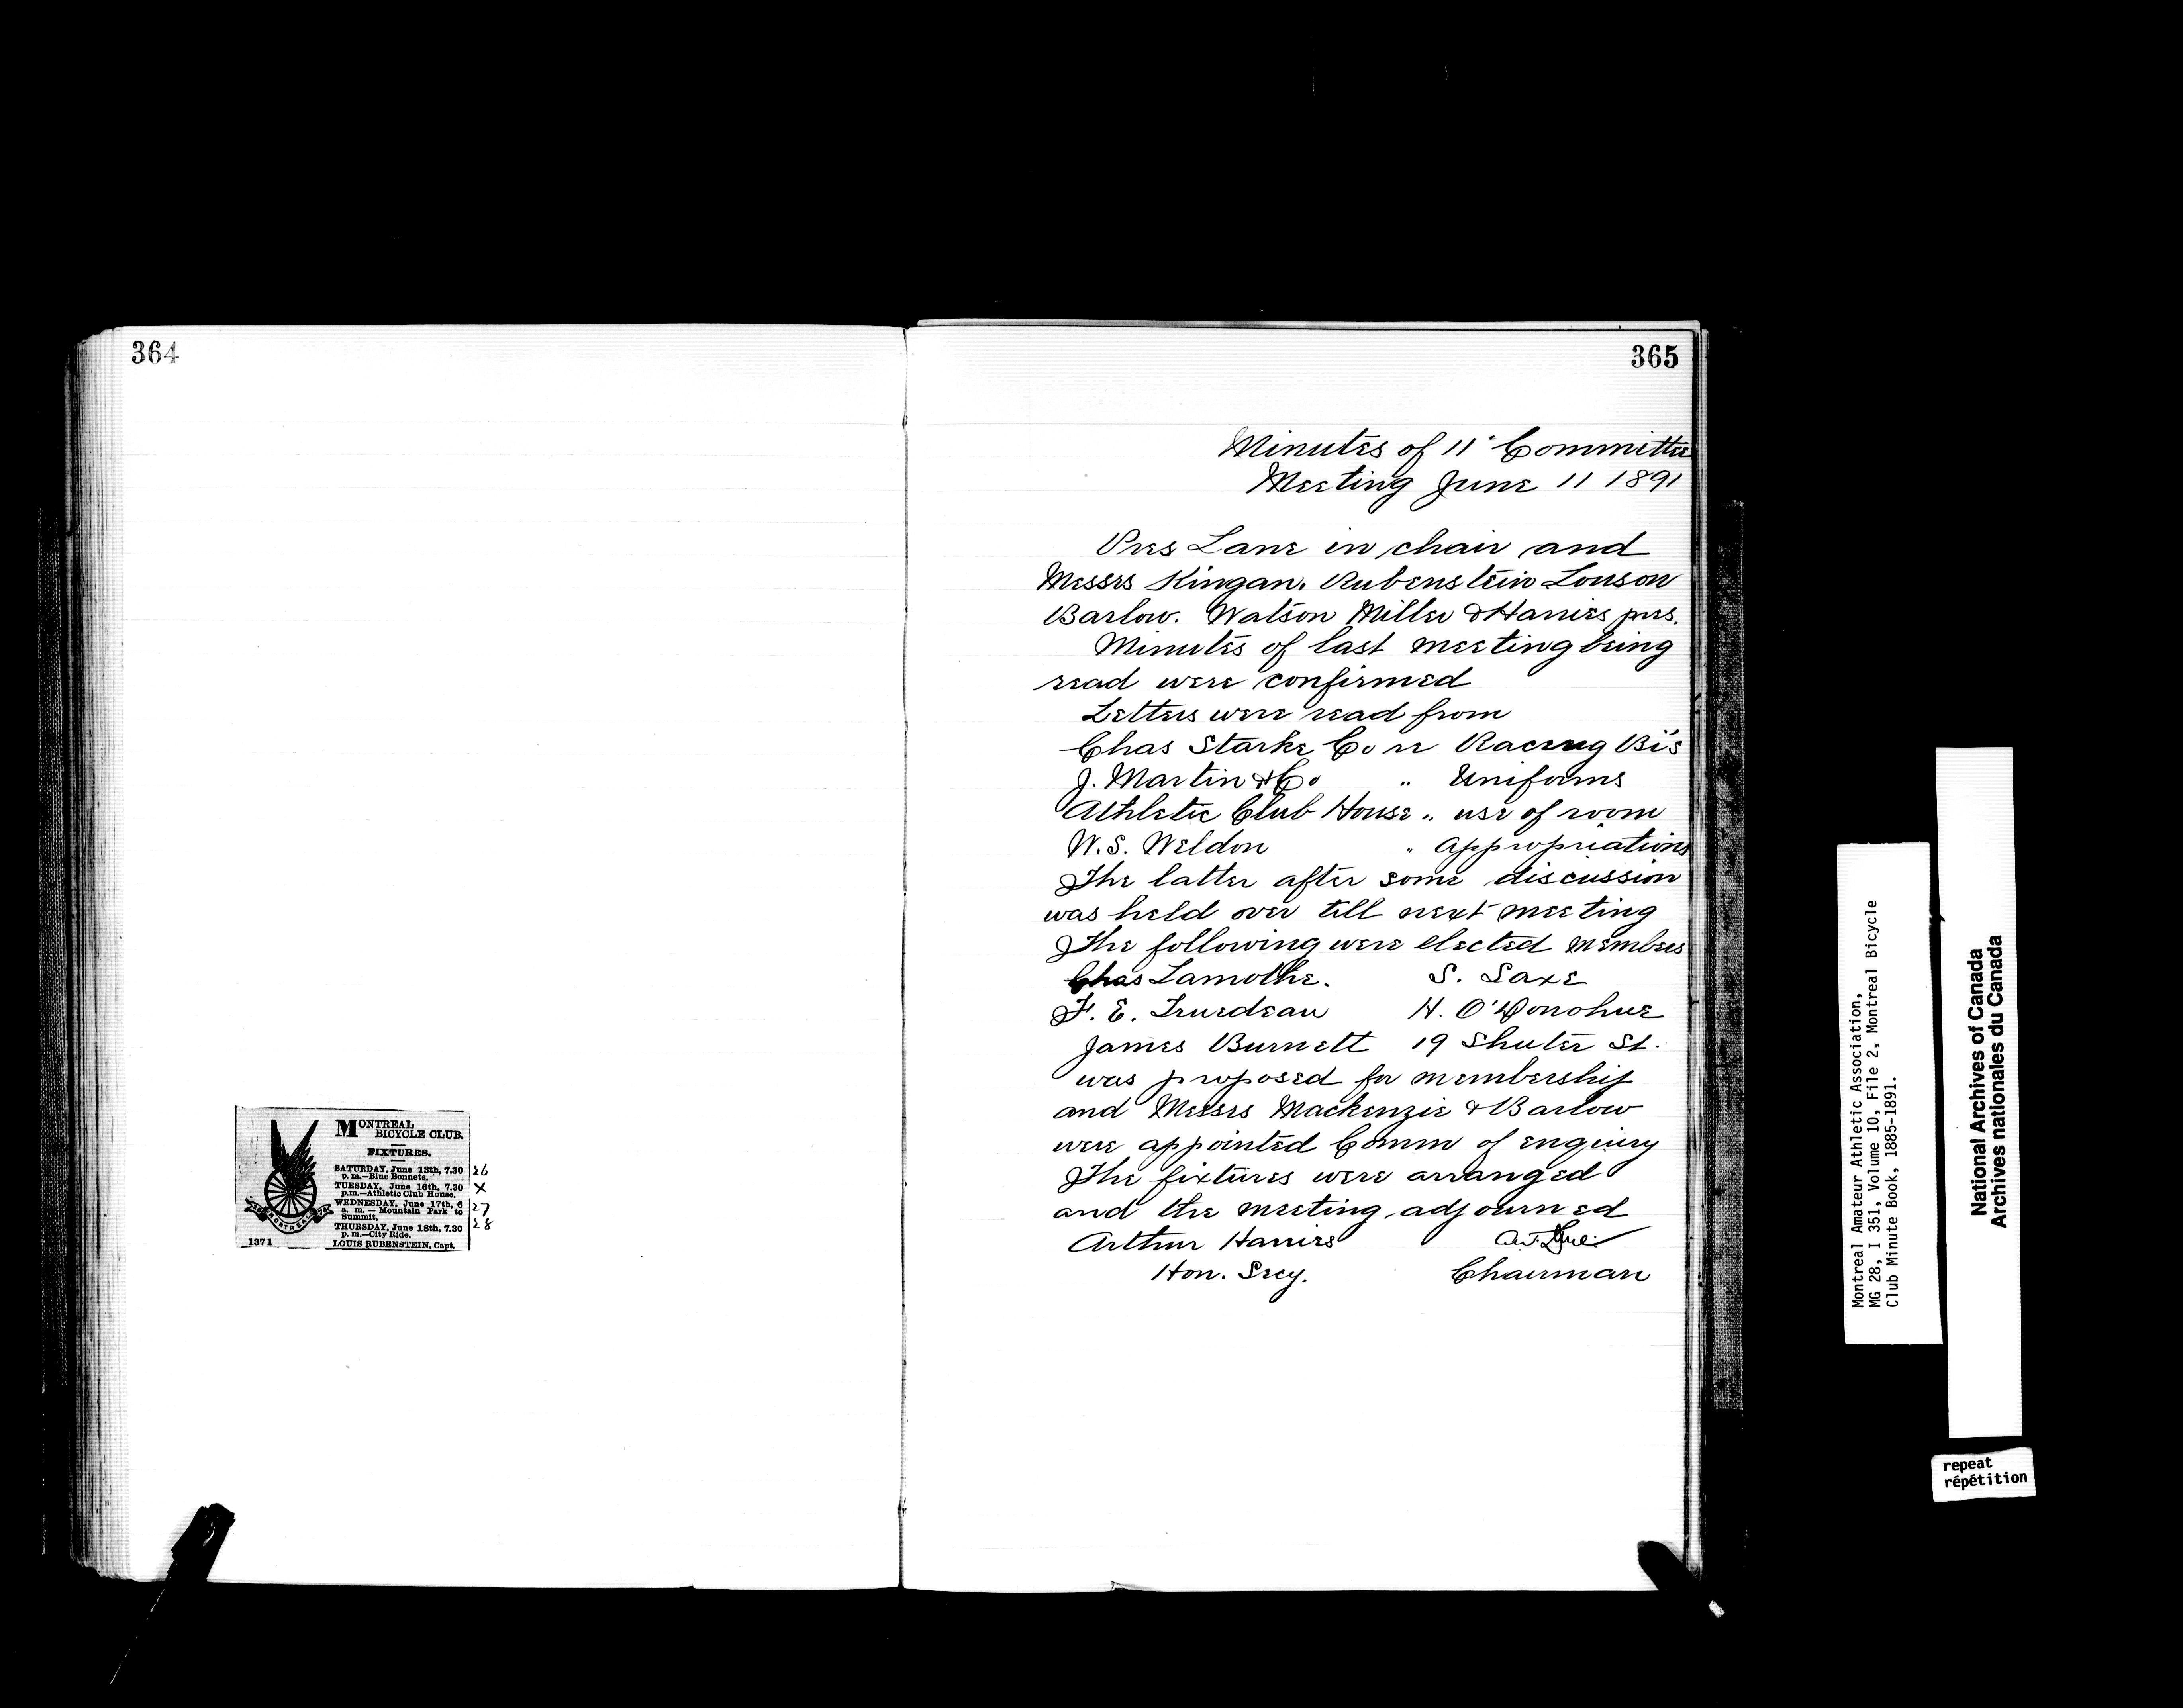 364
MONTREAL
BICYCLE CLUB.
FIXTURES.
SATURDAY, June 13th, 7.30
p. m.—Blue Bonnets.
TUESDAY, June 16th, 7.30
p.m.—Athletic Club House.
WEDNESDAY, June 17th, 6
a. m. — Mountain Park to
Summit.
THURSDAY, June 18th, 7.30
p. m.—City Ride.
LOUIS RUBENSTEIN, Capt.
1371
MONTREAL
26
X
27
28
365
Minutes of 11" Committee
Meeting June 11 1891
Pres Lane in chair and
Messrs Kingan. Rubenstein Louson
Barlow. Watson Miller & Harries pres.
Minutes of last meeting being
read were confirmed
Letters were read from
Chas Starke Co re Racing Bi's
J. Martin & Co " Uniforms
Athletic Club House " use of room
W. S. Weldon " appropriations
The latter after some discussion
was held over till next meeting
The following were elected members
Chas Lamothe. S. Saxe
F. E. Truedeau H. O'Donohue
James Burnett 19 Shuter St.
was proposed for membership
and Messrs Mackenzie & Barlow
were appointed Comm of enquiry
The fixtures were arranged
and the meeting adjourned
Arthur Harries
Hon. Secy. Chairman
Montreal Amateur Athletic Association,
MG 28, I 351, Volume 10, File 2, Montreal Bicycle
Club Minute Book, 1885-1891.
National Archives of Canada
Archives nationales du Canada
repeat
répétition